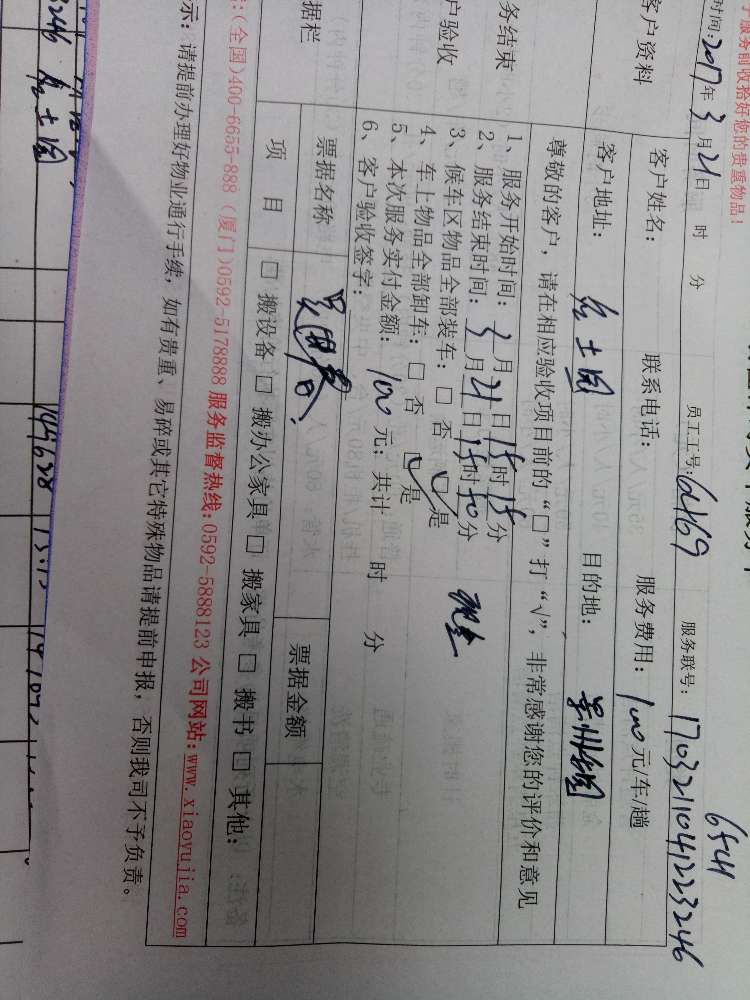 了服务前收拾好您的贵重物品！
时间：2017年3月21日 时 分 员工工号：6469 服务联号：1703211041223246
6541
客户资料
客户姓名： 联系电话： 服务费用：100元/车/趟
客户地址： 目的地：
尊敬的客户，请在相应验收项目前的“□”打“√”，非常感谢您的评价和意见
务结束
户验收
1、服务开始时间：3月 日15时15分
2、服务结束时间：3月21日15时50分
3、候车区物品全部装车：□ 否 ☑ 是
4、车上物品全部卸车：□ 否 ☑ 是
5、本次服务实付金额：100元；共计 时 分
6、客户验收签字：
现金
据栏
票据名称 票据金额
项 目 □ 搬设备 □ 搬办公家具 □ 搬家具 □ 搬书 □ 其他：
：(全国)400-6655-888（厦门）0592-5178888 服务监督热线:0592-5888123 公司网站:www.xiaoyujia.com
示：请提前办理好物业通行手续，如有贵重、易碎或其它特殊物品请提前申报，否则我司不予负责。
3246